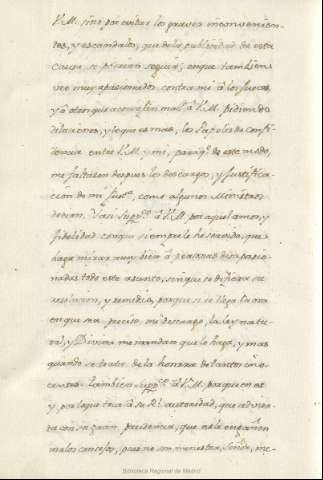 V.M. sino por evitar los graves inconvenien-
tes, y escandalos, que de la publicidad de esta
Causa, se podrian seguir, en que tambien
veo muy apasionados contra mi a los Jueces,
y a otros que aconsejan mal a V.M. pidiendo
dilaciones, y lo que es mas, los Papeles de confi-
dencia entre V.M. y mi, para q.e de este modo,
me faltasen despues los descargos, y Justifica-
ción de mi Just.a, como algunos Ministros
decian. Y asi Supp.co a V.M. por aquel amor, y
fidelidad con que siempre le he servido, que
haga mirar muy bien a personas desapasio-
nadas todo este asunto, sin que se difiera su
resolucion, y remedio, porque si se llega la ora
en que sea preciso mi descargo, la ley natu-
ral, y Divina me mandan que lo haga, y mas
quando se trata de la honrra de tantos ino-
centes. Tambien Supp.co a V.M. por quien es
y por lo que toca a su R.l autoridad, que advier-
ta con su gran prudencia, que no le engañen
malos consejos, pues no son menester, Señor, me-
Biblioteca Regional de Madrid